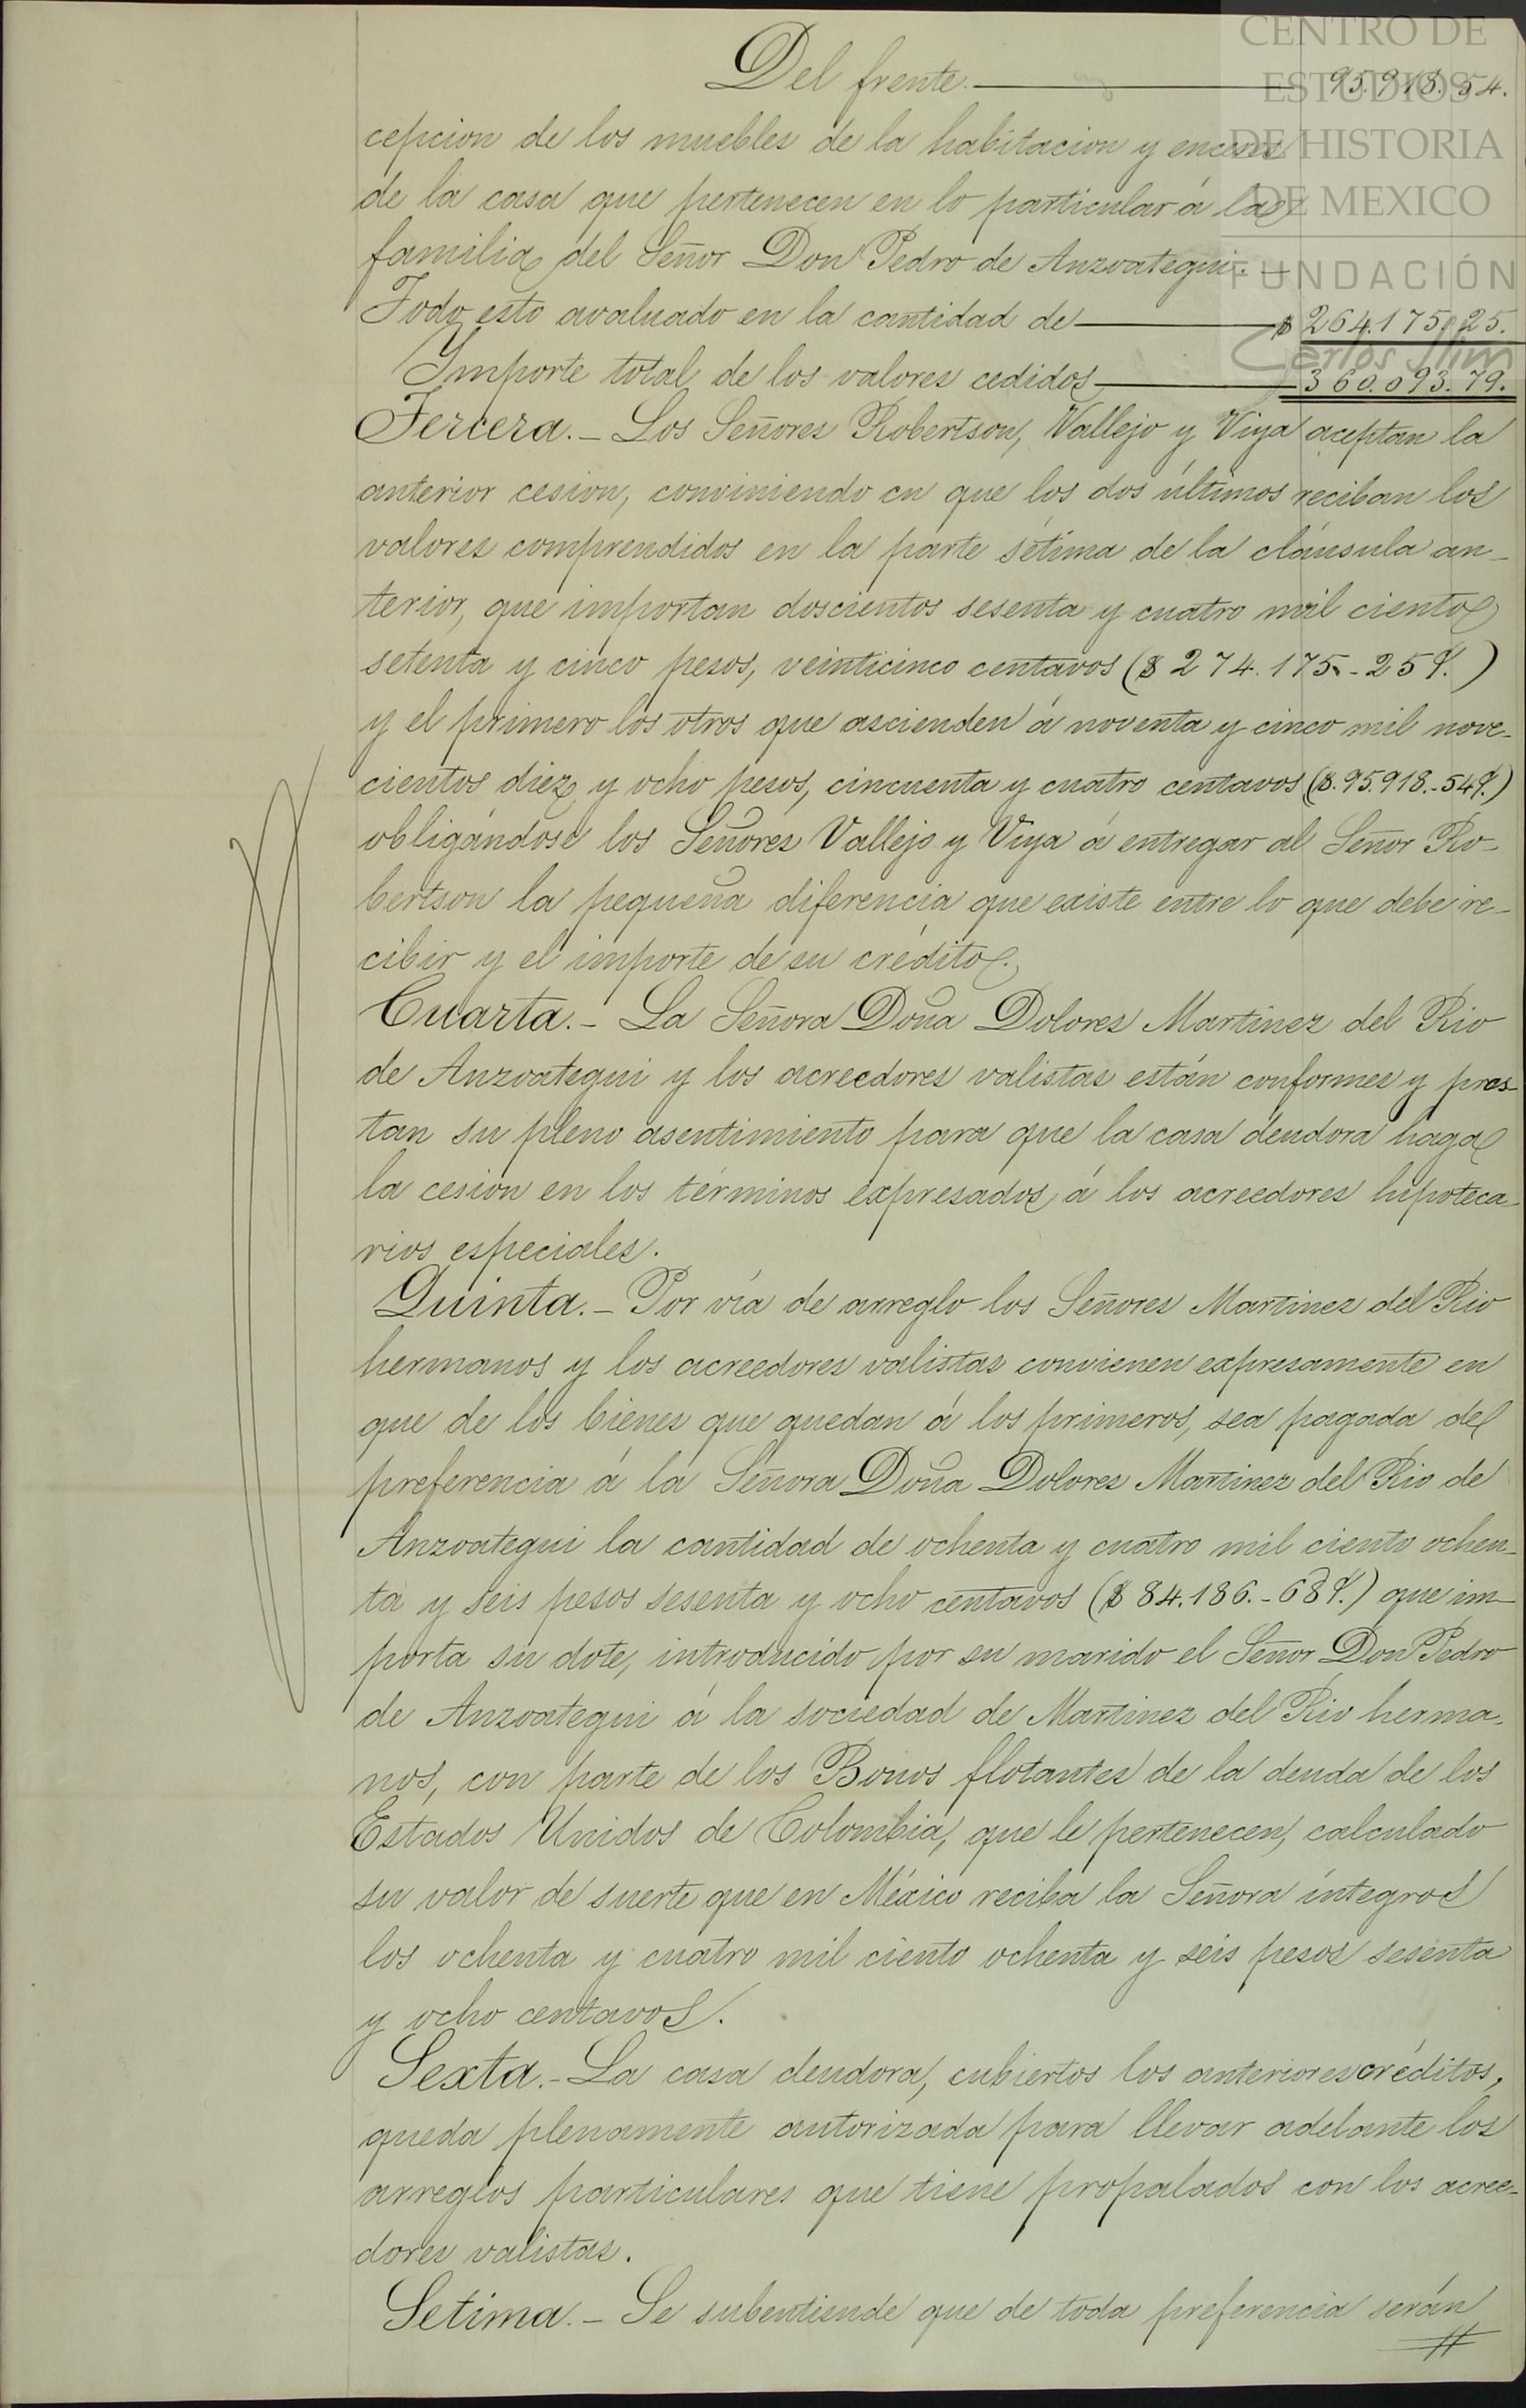 CENTRO DE
ESTUDIOS
DE HISTORIA
DE MEXICO
FUNDACIÓN
Carlos Slim
Del frente. 95.918.54.
cepcion de los muebles de la habitacion y enceres
de la casa que pertenecen en lo particular á la
familia del Señor Don Pedro de Anzoategui.—
Todo esto avaluado en la cantidad de $ 264.175.25.
Importe total de los valores cedidos 360.093.79.
Tercera.— Los Señores Robertson, Vallejo y Viya aceptan la
anterior cesion, conviniendo en que los dos últimos reciban los
valores comprendidos en la parte sétima de la cláusula an-
terior, que importan doscientos sesenta y cuatro mil ciento
setenta y cinco pesos, veinticinco centavos ($ 274.175.-25 ¢.)
y el primero los otros que ascienden á noventa y cinco mil nove-
cientos diez y ocho pesos, cincuenta y cuatro centavos ($.95.918.-54¢.)
obligándose los Señores Vallejo y Viya á entregar al Señor Ro-
bertson la pequeña diferencia que existe entre lo que debe re-
cibir y el importe de su crédito.
Cuarta.- La Señora Doña Dolores Martinez del Rio
de Anzoategui y los acreedores valistas están conformes y pres-
tan su pleno asentimiento para que la casa deudora haga
la cesion en los términos expresados á los acreedores hipoteca-
rios especiales.
Quinta.- Por vía de arreglo los Señores Martinez del Rio
hermanos y los acreedores valistas convienen expresamente en
que de los bienes que quedan á los primeros, sea pagada de
preferencia á la Señora Doña Dolores Martinez del Rio de
Anzoategui la cantidad de ochenta y cuatro mil ciento ochen-
ta y seis pesos sesenta y ocho centavos ($ 84.186.-68¢.) que im-
porta su dote, introducido por su marido el Señor Don Pedro
de Anzoategui á la sociedad de Martinez del Rio herma-
nos, con parte de los Bonos flotantes de la deuda de los
Estados Unidos de Colombia, que le pertenecen, calculado
su valor de suerte que en México reciba la Señora íntegros
los ochenta y cuatro mil ciento ochenta y seis pesos sesenta
y ocho centavos.
Sexta.- La casa deudora, cubiertos los anteriores créditos,
queda plenamente autorizada para llevar adelante los
arreglos particulares que tiene propalados con los acree-
dores valistas.
Setima.- Se subentiende que de toda preferencia serán